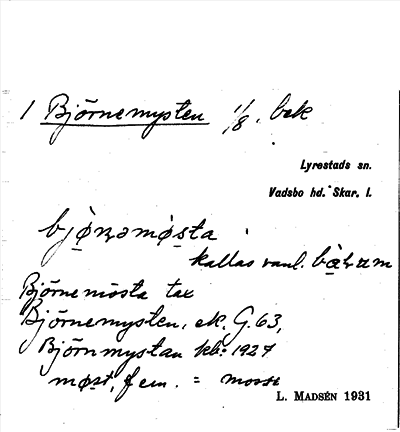 1 Björnemysten 1/8. bek
Lyrestads sn.
Vadsbo hd. Skar. l.
bjø̀ṇəmø̀sta
kallas vanl.
Björnemösta tax
Björnemysten, ek. G. 63,
Björnmystan kb: 1927
møst, fem. = mosse
L. MADSÉN 1931